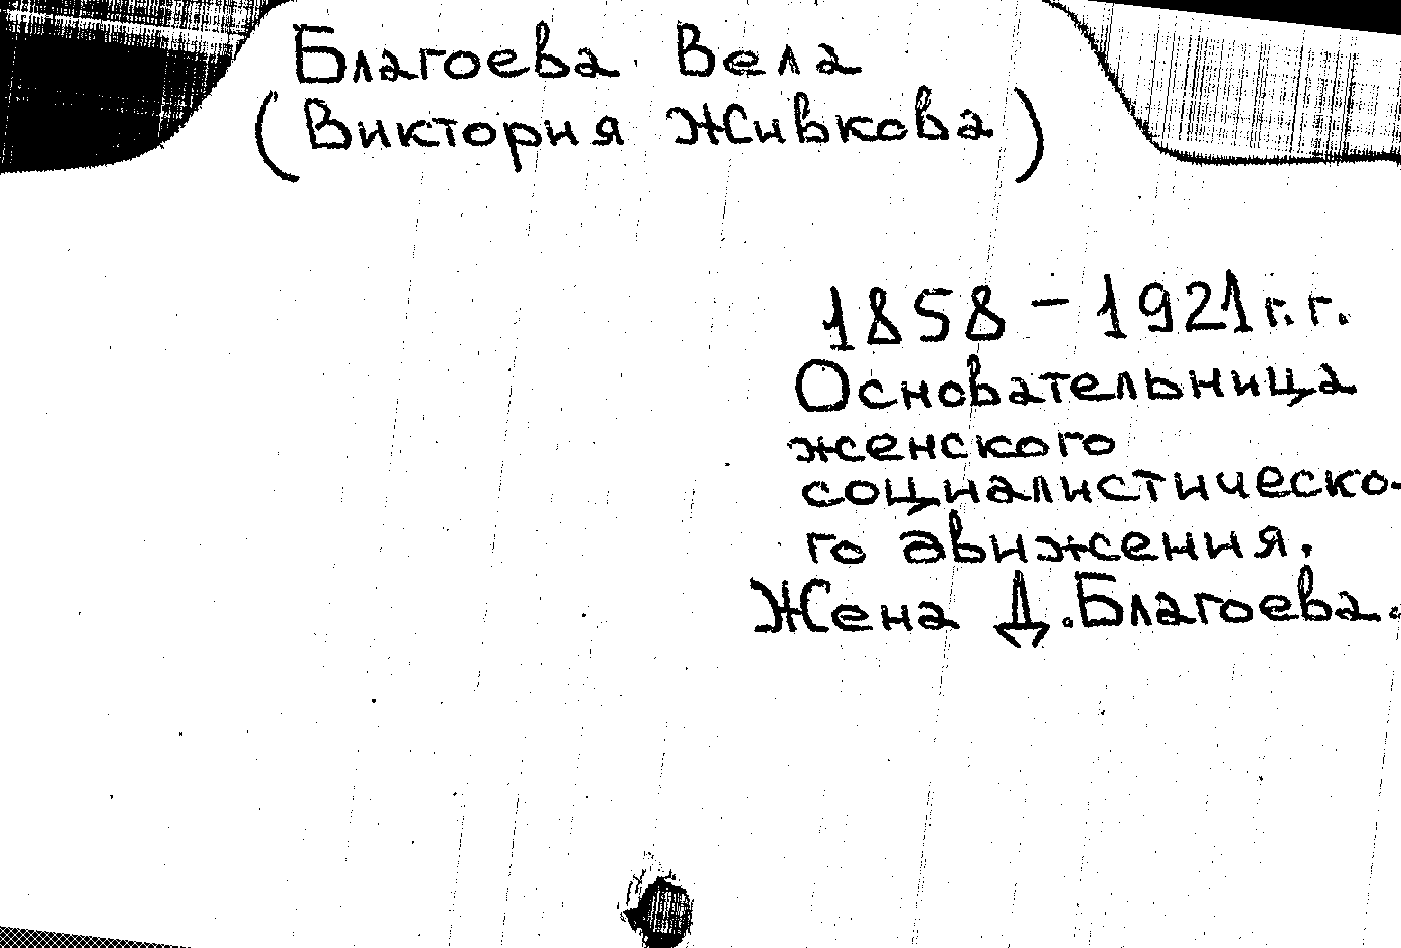 Благоева Вела
(Виктория Живкова)
1858 - 1921 г.г.
Основательница
женского
социалистическо-
го движения.
Жена Д. Благоева.